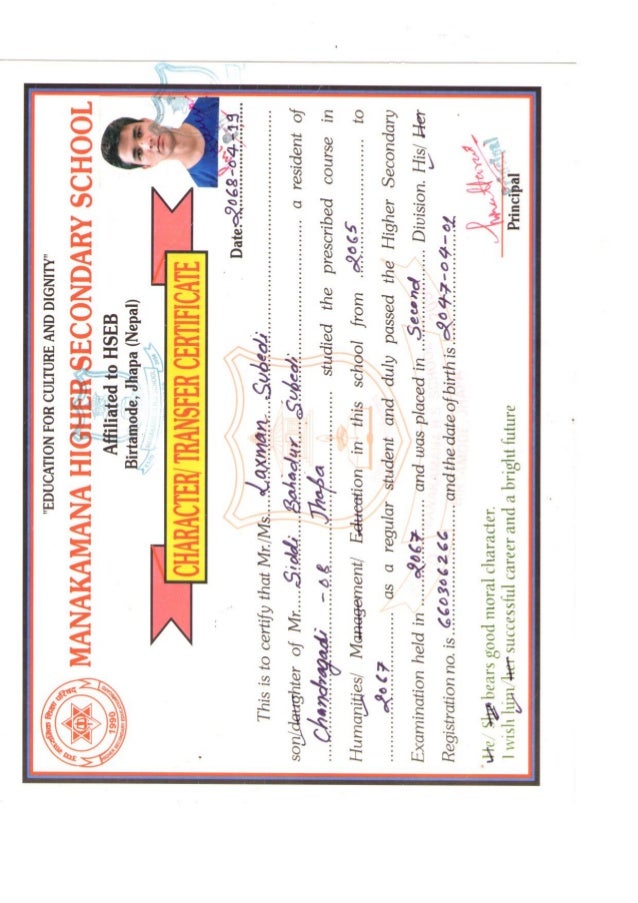 "EDUCATION FOR CULTURE AND DIGNITY"
MANAKAMANA HIGHER SECONDARY SCHOOL
Affiliated to HSEB
Birtamode, Jhapa (Nepal)
1990
CHARACTER/ TRANSFER CERTIFICATE
Date: 2068-04-19
This is to certify that Mr./Ms. Laxman Subedi
son/daughter of Mr. Siddi Bahadur Subedi a resident of
Chandragadi - 08 Jhapa studied the prescribed course in
Humanities/ Management/ Education in this school from 2065 to
2067 as a regular student and duly passed the Higher Secondary
Examination held in 2067 and was placed in Second Division. His/ Her
Registration no. is 660306266 and the date of birth is 2047-04-01
He/ She bears good moral character.
I wish him/her successful career and a bright future
Principal